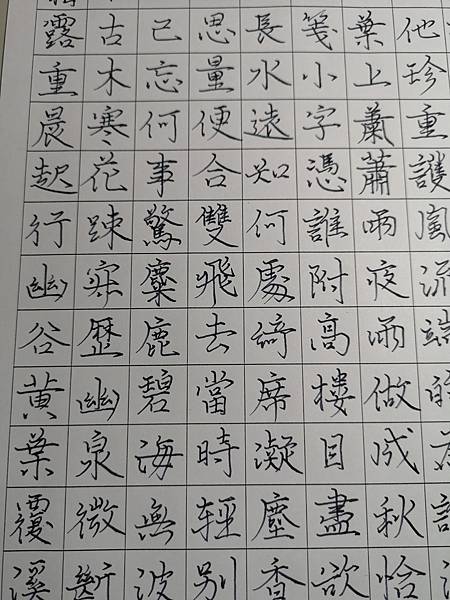 露重晨起行幽谷黃葉覆溪
古木寒花踈寂歷幽泉微斷
己忘何事驚麋鹿碧海無波
思量便合雙飛去當時輕別
長水遠知何處綺席凝塵香
箋小字憑誰附高樓目盡欲
葉上蕭蕭雨夜雨做成秋恰
他珍重護風流端的為